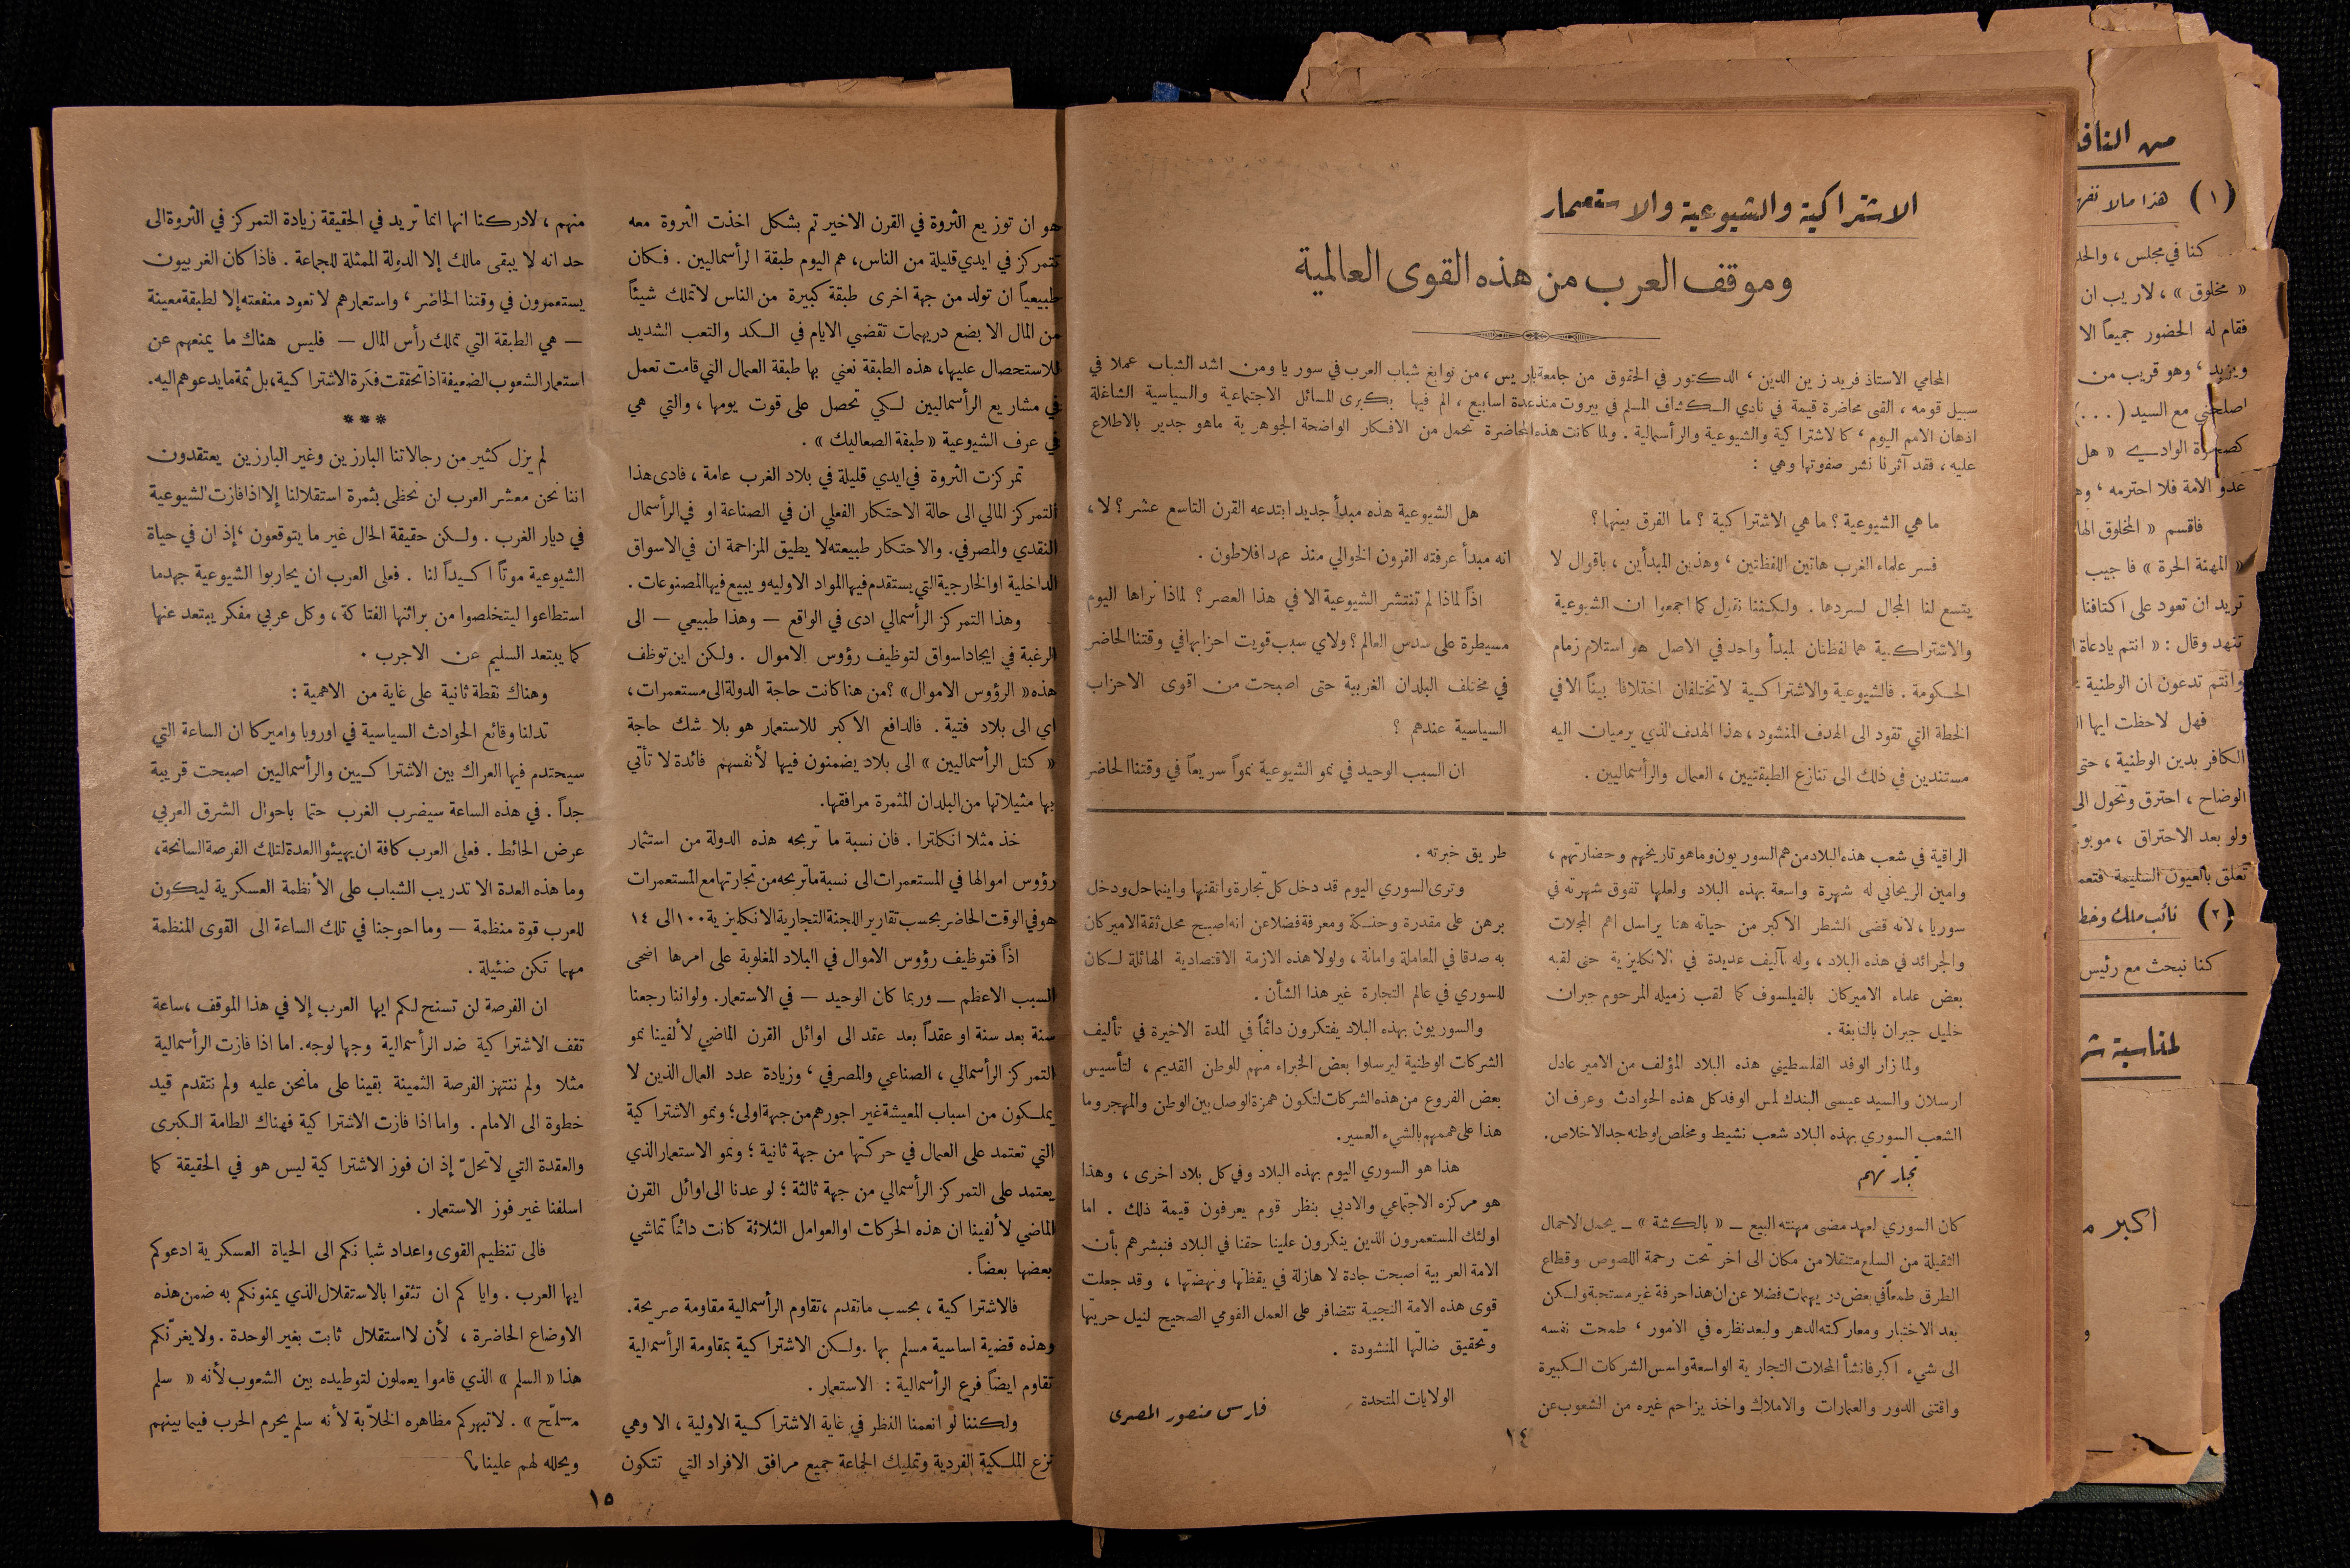 الاشتراكية والشيوعية والاستعمار
وموقف العرب من هذه القوى العالمية
المحامي الاستاذ فريد زين الدين ، الدكتور في الحقوق من جامعة باريس ، من نوابغ شباب العرب في سوريا ومن اشد الشباب عملا في
سبيل قومه ، القى محاضرة قيمة في نادي الكشاف المسلم في بيروت منذ عدة اسابيع ، الم فيها بكبرى المسائل الاجتماعية والسياسية الشاغلة
اذهان الامم اليوم ، كالاشتراكية والشيوعية والرأسمالية . ولما كانت هذه المحاضرة تحمل من الافكار الواضحة الجوهرية ماهو جدير بالاطلاع
عليه ، فقد آثرنا نشر صفوتها وهي :
ما هي الشيوعية ؟ ما هي الاشتراكية ؟ ما الفرق بينهما ؟
فسر علماء الغرب هاتين اللفظتين ، وهذين المبدأين ، باقوال لا
يتسع لنا المجال لسردها . ولكننا نقول كما اجمعوا ان الشيوعية
والاشتراكية هما لفظتان لمبدأ واحد في الاصل هو استلام زمام
الحكومة . فالشيوعية والاشتراكية لا تختلفان اختلافا بيناً الا في
الخطة التي تقود الى الهدف المنشود ، هذا الهدف الذي يرميان اليه
مستندين في ذلك الى تنازع الطبقتيين ، العمال والرأسماليين .
هل الشيوعية هذه مبدأ جديد ابتدعه القرن التاسع عشر ؟ لا ،
انه مبدأ عرفته القرون الخوالي منذ عهد افلاطون .
اذاً لماذا لم تنتشر الشيوعية الا في هذا العصر ؟ لماذا نراها اليوم
مسيطرة على سدس العالم ؟ ولاي سبب قويت احزابها في وقتنا الحاضر
في مختلف البلدان الغربية حتى اصبحت من اقوى الاحزاب
السياسية عندهم ؟
ان السبب الوحيد في نمو الشيوعية نمواً سريعاً في وقتنا الحاضر
الراقية في شعب هذه البلاد من هم السوريون وما هو تاريخهم وحضارتهم ،
وامين الريحاني له شهرة واسعة بهذه البلاد ولعلها تفوق شهرته في
سوريا ، لانه قضى الشطر الاكبر من حياته هنا يراسل اهم المجلات
والجرائد في هذه البلاد ، وله تآليف عديدة في الانكليزية حتى لقبه
بعض علماء الاميركان بالفيلسوف كما لقب زميله المرحوم جبران
خليل جبران بالنابغة .
ولما زار الوفد الفلسطيني هذه البلاد المؤلف من الامير عادل
ارسلان والسيد عيسى البندك لمس الوفد كل هذه الحوادث وعرف ان
الشعب السوري بهذه البلاد شعب نشيط ومخلص لوطنه جد الاخلاص .
تجارتهم
كان السوري لعهد مضى مهنته البيع — « بالكشة » — يحمل الاحمال
الثقيلة من السلع متنقلا من مكان الى اخر تحت رحمة اللصوص وقطاع
الطرق طمعاً في بعض دريهمات فضلا عن ان هذا حرفة غير مستحبة ولكن
بعد الاختبار ومعاركته الدهر ولبعد نظره في الامور ، طمحت نفسه
الى شيء اكبر فانشأ المحلات التجارية الواسعة واسس الشركات الكبيرة
واقتنى الدور والعمارات والاملاك واخذ يزاحم غيره من الشعوب عن
طريق خبرته .
وترى السوري اليوم قد دخل كل تجارة واتقنها واينما حل ودخل
برهن على مقدرة وحنكة ومعرفة فضلا عن انه اصبح محل ثقة الاميركان
به صدقا في المعاملة وامانة ، ولولا هذه الازمة الاقتصادية الهائلة لكان
للسوري في عالم التجارة غير هذا الشأن .
والسوريون بهذه البلاد يفتكرون دائماً في المدة الاخيرة في تأليف
الشركات الوطنية ليرسلوا بعض الخبراء منهم للوطن القديم ، لتأسيس
بعض الفروع من هذه الشركات لتكون همزة الوصل بين الوطن والمهجر وما
هذا على هممهم بالشيء العسير .
هذا هو السوري اليوم بهذه البلاد وفي كل بلاد اخرى ، وهذا
هو مركزه الاجتماعي والادبي بنظر قوم يعرفون قيمة ذلك . اما
اولئك المستعمرون الذين ينكرون علينا حقنا في البلاد فنبشرهم بأن
الامة العربية اصبحت جادة لا هازلة في يقظتها ونهضتها ، وقد جعلت
قوى هذه الامة النجيبة تتضافر على العمل القومي الصحيح لنيل حريتها
وتحقيق ضالتها المنشودة .
الولايات المتحدة
فارس منصور المصرى
١٤
هو ان توزيع الثروة في القرن الاخير تم بشكل اخذت الثروة معه
تتمركز في ايدي قليلة من الناس ، هم اليوم طبقة الرأسماليين . فكان
طبيعياً ان تولد من جهة اخرى طبقة كبيرة من الناس لا تملك شيئاً
من المال الا بضع دريهمات تقضي الايام في الكد والتعب الشديد
للاستحصال عليها ، هذه الطبقة نعني بها طبقة العمال التي قامت تعمل
في مشاريع الرأسماليين لكي تحصل على قوت يومها ، والتي هي
في عرف الشيوعية « طبقة الصعاليك » .
تمركزت الثروة في ايدي قليلة في بلاد الغرب عامة ، فادى هذا
التمركز المالي الى حالة الاحتكار الفعلي ان في الصناعة او في الرأسمال
النقدي والمصرفي . والاحتكار طبيعته لا يطيق المزاحمة ان في الاسواق
الداخلية او الخارجية التي يستقدم فيها المواد الاوليه ويبيع فيها المصنوعات .
وهذا التمركز الرأسمالي ادى في الواقع — وهذا طبيعي — الى
الرغبة في ايجاد اسواق لتوظيف رؤوس الاموال . ولكن اين توظف
هذه « الرؤوس الاموال » ؟ من هنا كانت حاجة الدولة الى مستعمرات ،
اي الى بلاد فتية . فالدافع الاكبر للاستعمار هو بلا شك حاجة
« كتل الرأسماليين » الى بلاد يضمنون فيها لأنفسهم فائدة لا تأتي
بها مثيلاتها من البلدان المثمرة مرافقها .
خذ مثلا انكلترا . فان نسبة ما تربحه هذه الدولة من استثمار
رؤوس اموالها في المستعمرات الى نسبة ما تربحه من تجارتها مع المستعمرات
هو في الوقت الحاضر بحسب تقارير اللجنة التجارية الانكليزية ١٠٠ الى ١٤
اذاً فتوظيف رؤوس الاموال في البلاد المغلوبة على امرها اضحى
السبب الاعظم — وربما كان الوحيد — في الاستعمار . ولو اننا رجعنا
سنة بعد سنة او عقداً بعد عقد الى اوائل القرن الماضي لألفينا نمو
التمركز الرأسمالي ، الصناعي والمصرفي ، وزيادة عدد العمال الذين لا
يملكون من اسباب المعيشة غير اجورهم من جهة اولى ؛ ونمو الاشتراكية
التي تعتمد على العمال في حركتها من جهة ثانية ؛ ونمو الاستعمار الذي
يعتمد على التمركز الرأسمالي من جهة ثالثة ؛ لو عدنا الى اوائل القرن
الماضي لألفينا ان هذه الحركات او العوامل الثلاثة كانت دائماً تماشي
بعضها بعضاً .
فالاشتراكية ، بحسب ماتقدم ، تقاوم الرأسمالية مقاومة صريحة .
وهذه قضية اساسية مسلم بها . ولكن الاشتراكية بمقاومة الرأسمالية
تقاوم ايضاً فرع الرأسمالية : الاستعمار .
ولكننا لو انعمنا النظر في غاية الاشتراكية الاولية ، الا وهي
نزع الملكية الفردية وتمليك الجماعة جميع مرافق الافراد التي تتكون
منهم ، لادركنا انها انما تريد في الحقيقة زيادة التمركز في الثروة الى
حد انه لا يبقى مالك إلا الدولة الممثلة للجماعة . فاذا كان الغربيون
يستعمرون في وقتنا الحاضر ، واستعمارهم لا تعود منفعته إلا لطبقة معينة
— هي الطبقة التي تملك رأس المال — فليس هناك ما يمنعهم عن
استعمار الشعوب الضعيفة اذا تحققت فكرة الاشتراكية ، بل ثمة ما يدعوهم اليه .
***
لم يزل كثير من رجالاتنا البارزين وغير البارزين يعتقدون
اننا نحن معشر العرب لن نحظى بثمرة استقلالنا إلا اذا فازت الشيوعية
في ديار الغرب . ولكن حقيقة الحال غير ما يتوقعون ، إذ ان في حياة
الشيوعية موتاً اكيداً لنا . فعلى العرب ان يحاربوا الشيوعية جهدما
استطاعوا ليتخلصوا من براثنها الفتاكة ، وكل عربي مفكر يبتعد عنها
كما يبتعد السليم عن الاجرب .
وهناك نقطة ثانية على غاية من الاهمية :
تدلنا وقائع الحوادث السياسية في اوروبا واميركا ان الساعة التي
سيحتدم فيها العراك بين الاشتراكيين والرأسماليين اصبحت قريبة
جداً . في هذه الساعة سيضرب الغرب حتما باحوال الشرق العربي
عرض الحائط . فعلى العرب كافة ان يهيئوا العدة لتلك الفرصة السانحة ،
وما هذه العدة الا تدريب الشباب على الأنظمة العسكرية ليكون
للعرب قوة منظمة — وما احوجنا في تلك الساعة الى القوى المنظمة
مهما تكن ضئيلة .
ان الفرصة لن تسنح لكم ايها العرب إلا في هذا الموقف ، ساعة
تقف الاشتراكية ضد الرأسمالية وجها لوجه . اما اذا فازت الرأسمالية
مثلا ولم ننتهز الفرصة الثمينة بقينا على مانحن عليه ولم نتقدم قيد
خطوة الى الامام . واما اذا فازت الاشتراكية فهناك الطامة الكبرى
والعقدة التي لاتحلّ إذ ان فوز الاشتراكية ليس هو في الحقيقة كما
اسلفنا غير فوز الاستعمار .
فالى تنظيم القوى واعداد شبانكم الى الحياة العسكرية ادعوكم
ايها العرب . واياكم ان تثقوا بالاستقلال الذي يمنونكم به ضمن هذه
الاوضاع الحاضرة ، لأن لا استقلال ثابت بغير الوحدة . ولا يغرّنكم
هذا « السلم » الذي قاموا يعملون لتوطيده بين الشعوب لأنه « سلم
مسلّح » . لا تبهركم مظاهره الخلاّبة لأنه سلم يحرم الحرب فيما بينهم
ويحلله لهم علينا
١٥
(١) هذا مالا
كنا في مجلس ،
« مخلوق » ، لاريب ان
فقام له الحضور جميعاً الا
ويزيد ، وهو قريب من
اصلحني مع السيد ( . . . )
الوادي « هل
عدو الامة فلا احترمه ،
فاقسم « المخلوق
« المهنة الحرة » فاجيب
تريد ان تعود على اكتافنا
تنهد وقال : « انتم يادعاة
وانتم تدعون ان الوطنية
فهل لاحظت ايها
الكافر بدين الوطنية ، حتى
الوضاح ، احترق وتحول الى
ولو بعد الاحتراق ،
تعلق بالعيون السليمة
(٢) نائب ملك
كنا نبحث مع رئيس
لمناسبة
أكبر